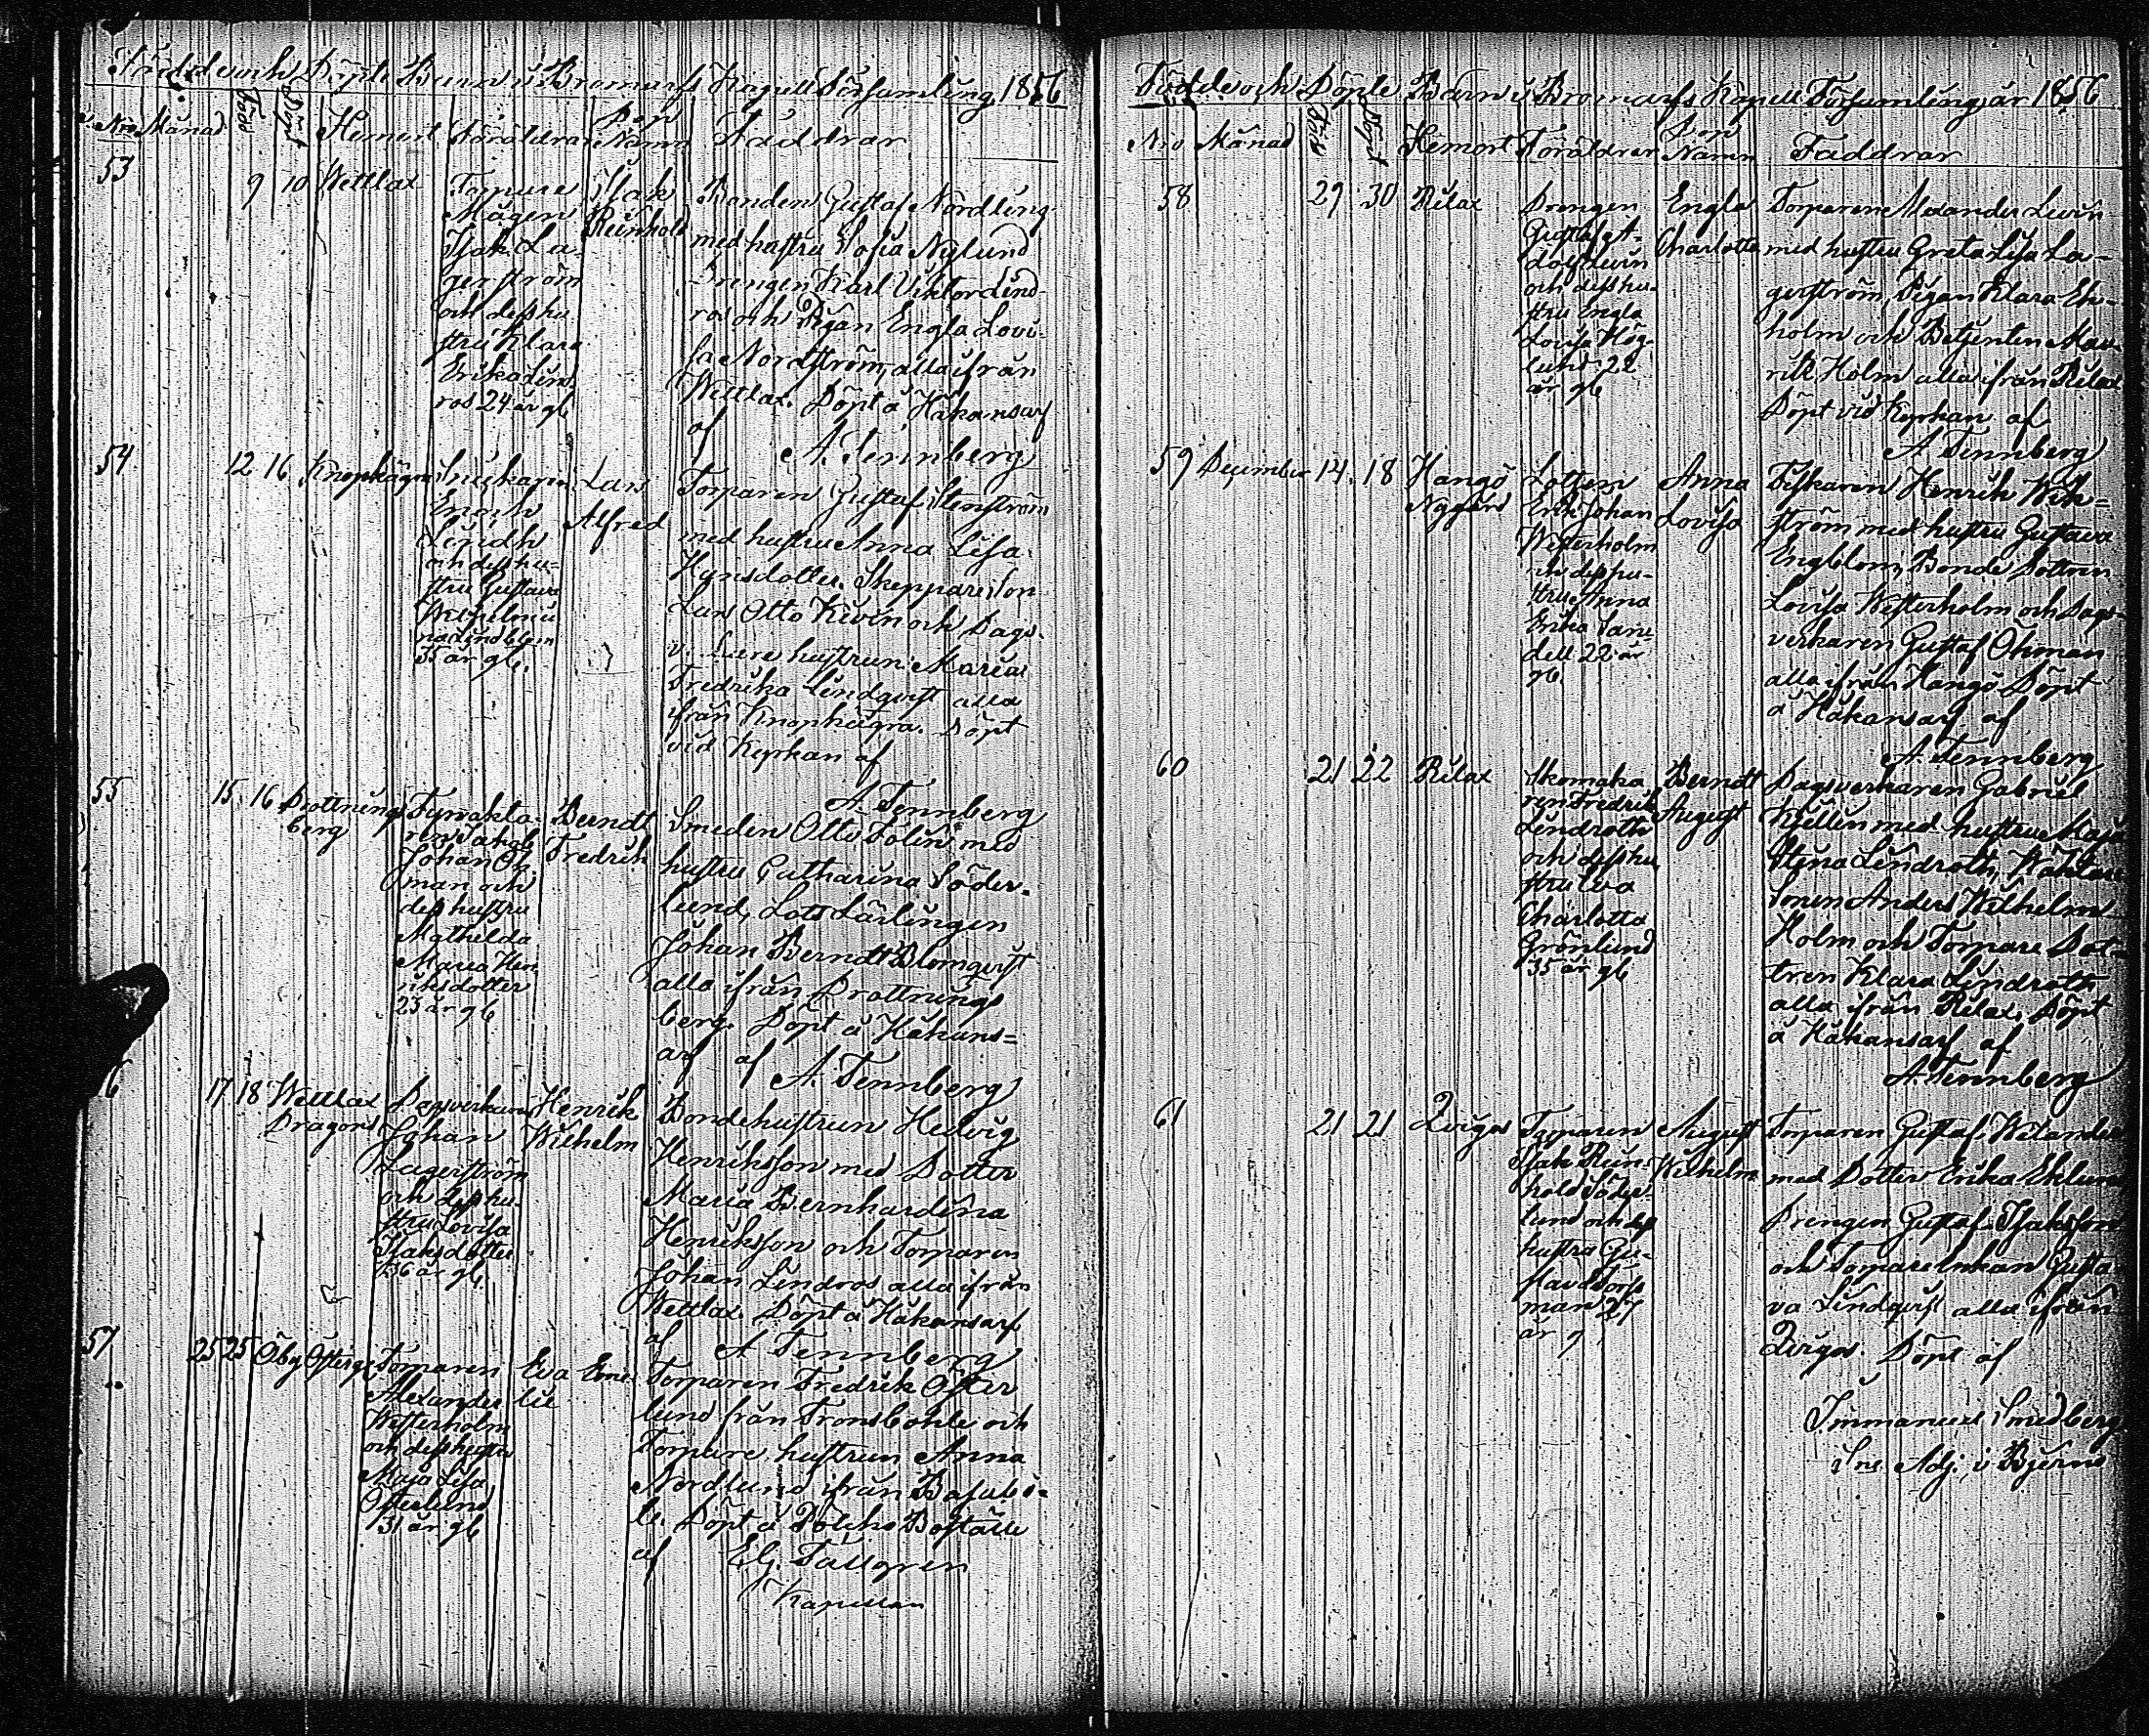 Födde och Döpte Barn i Bromarfs Kapell Församling 1856
Nro Månad Född Döpt Hemort Föräldrar Dop Namn Faddrar
53 9 10 Wettlax
Torpare
Mågen
Isak La-
gerström
och dess hu
stru Klara
Erika Lind
ros 24 år g/6
Isak
Reinhold
Bonden Gustaf Nordling
med hustru Sofia Nylund
Drengen Karl Viktor Lind-
ros och Pigan Engla Lovi-
sa Nordström, alla ifrån
Wettlax. Döpt å Håkansarf
af
A. Tennberg
54 12 16 Knophägra
Enoch
Lindh
och dess hu-
stru Gustava
Wilhelmi
na Lindblom
35 år g/6.
Lars
Alfred
Torparen Gustaf Stenström
med hustru Anna Lisa
Skeppare Son
Lars Otto Kevin och Dags-
v. Lare hustrun Maria
Fredrika Lindqvist alla
ifrån Knophägra. Döpt
vid Kyrkan af
A. Tennberg
55 15 16 Drottning
berg
Fyrvakta-
ren Jakob
Johan Öh
man och
dess hustru
Mathilda
Maria Hen
riksdotter
23 år g/6
Berndt
Fredrik
Smeden Otto Folin med
hustru Catharina Söder-
lund, Lots Lärlingen
Johan Berndt Blomqvist
alla ifrån Drottnings
berg. Döpt å Håkans=
arf af
A. Tennberg
6 17 18 Wettlax
Dragors
Dagsverkaren
Johan
Lagerström
och dess hu-
stru Lovisa
Isaksdotter
36 år g/6
Henrik
Wilhelm
Bondehustrun Hedvig
Henriksson med Dotter
Maria Bernhardina
Henriksson och Torparen
Johan Lindros alla ifrån
Wettlax. Döpt å Håkansarf
af A Tennberg
57 25 25 Öby
Torparen
Alexander
Westerholm
och dess hustru
Maja Lisa
Österlund
31 år g/6
Eva Eme
lie
Torparen Fredrik Öster
lund från Tronsbohle och
Torpare hustrun Anna
Nordlund ifrån Basabö-
le. Döpt å Bolcho Boställe
af E.G. Tallgren
Kapellan
Födde och Döpte Barn i Bromarfs Kapell Församling år 1856
Nro Månad Född Döpt Hemort Föräldrar Dop Namn Faddrar
58 29 30 Rilax
Drengen
Gustaf A-
dolf Levin
och dess hu-
stru Engla
Lovisa Hög-
lund 22
år g/6
Engla
Charlotta
Torparen Alexander Levin
med hustru Greta Lisa La-
gerström, Pigan Klara Ek-
holm och Betjenten Mau
ritz Holm alla ifrån Rilax
Döpt vid Kyrkan af
A Tennberg
59 December 14 18 Hangö
Nygård
Lotsen
Erik Johan
Westerholm
och dess hu-
stru Anna
Erika San
dell 22 år
g/6.
Anna
Lovisa
Fiskaren Henrik Wik=
ström med hustru Gustava
Engblom, Bonde Dottren
Lovisa Westerholm och Dags-
verkaren Gustaf Öhman
alla ifrån Hangö Döpt
å Håkansarf af
A. Tennberg
60 21 22 Rilax
Skomaka
ren Fredrik
Lindroth
och dess hu
stru Eva
Charlotta
Grönlund
35 år g/6
Berndt
August
Dagsverkaren Gabriel
Kjellin med hustru Maja
Stina Lindroth, Wäktare
Sonen Anders Wilhelm
Holm och Torpare Dot-
tren Klara Lindroth
alla ifrån Rilax, Döpt
å Håkansarf af
A. Tennberg
61 21 21 Qvigos
Torparen
Isak Rein
hold Söder-
lund och dess
hustru Gu-
stava Torss
man 27
år g
August
Wilhelm
Torparen Gustaf Welander
med Dotter Erika Eklund
Drengen Gustaf Isaksson
och Torpare Enkan Gusta-
va Lindqvist alla ifrån
Qvigos. Döpt af
Immanuel Smedberg
Adj. i Bjerno